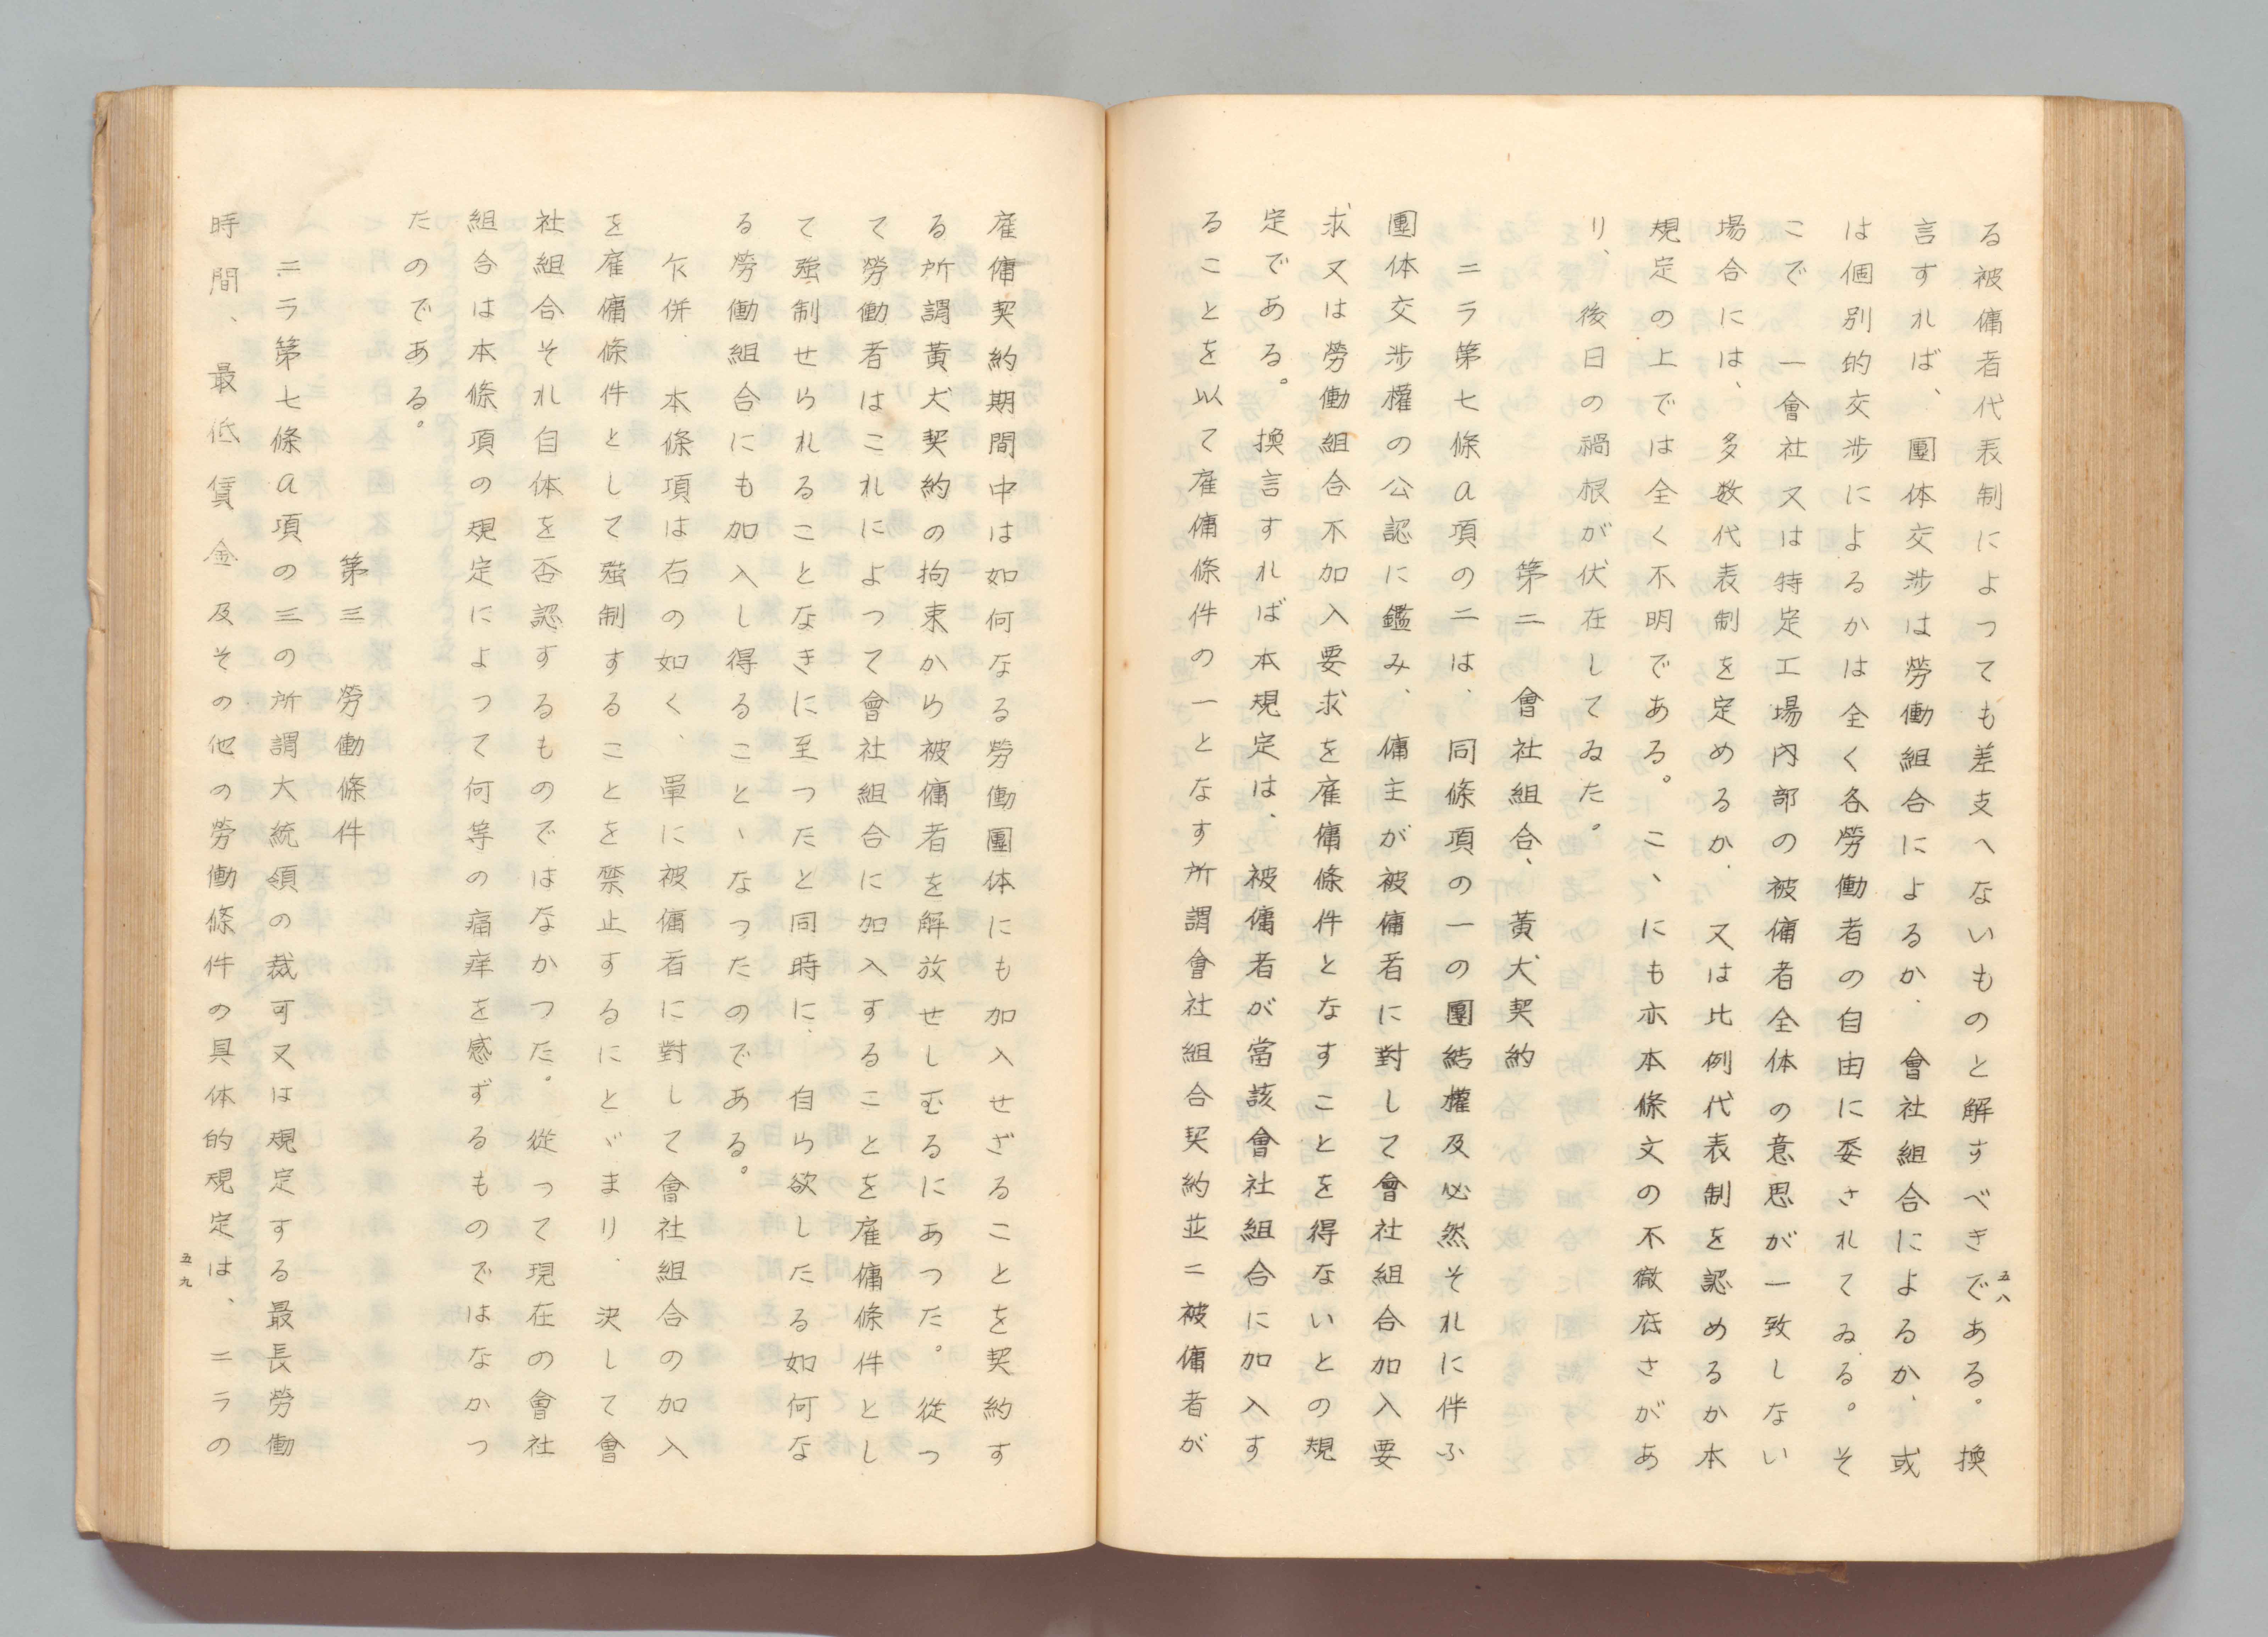 る被傭者代表制によつても差支へないものと解すべきである。換
言すれば、團体交涉は勞働組合によるか、會社組合によるか、或
は個別的交涉によるかは全く各勞働者の自由に委されてゐる。そ
こで、一會社又は特定工場內部の被傭者全体の意思が一致しない
場合には、多数代表制を定めるか、又は比例代表制を認めるか本
規定の上では全く不明である。こゝにも亦本條文の不徹底さがあ
り、後日の禍根が伏在してゐた。
第二　會社組合、黃犬契約
ニラ第七條a項の二は、同條項の一の團結權及必然それに伴ふ
團体交涉權の公認に鑑み、傭主が被傭者に對して會社組合加入要
求又は勞働組合不加入要求を雇傭條件となすことを得ないとの規
定である。換言すれば本規定は、被傭者が當該會社組合に加入す
ることを以て雇傭條件の一となす所謂會社組合契約並ニ被傭者が
五八
雇傭契約期間中は如何なる勞働團体にも加入せざることを契約す
る所謂黃犬契約の拘束から被傭者を解放せしむるにあつた。從つ
て勞働者はこれによつて會社組合に加入することを雇傭條件とし
て強制せられることなきに至つたと同時に、自ら欲したる如何な
る勞働組合にも加入し得ることゝなつたのである。
乍併、本條項は右の如く、單に被傭者に對して會社組合の加入
を雇傭條件として強制することを禁止するにとゞまり、決して會
社組合それ自体を否認するものではなかつた。從つて現在の會社
組合は本條項の規定によつて何等の痛痒を感ずるものではなかつ
たのである。
第三　勞働條件
ニラ第七條a項の三の所謂大統領の裁可又は規定する最長勞働
時間、最低賃金及その他の勞働條件の具体的規定は、ニラの
五九